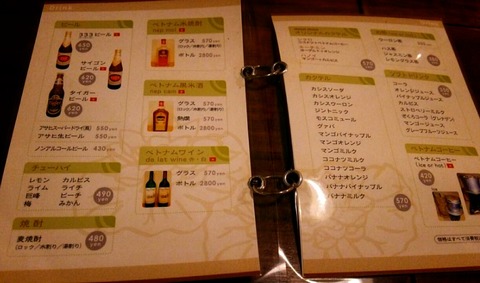 Drink
ビール
333ビール
480
yen
サイゴン
ビール
620
yen
タイガー
ビール
620
yen
アサヒスーパードライ(瓶) 550yen
アサヒ生ビール 550yen
ノンアルコールビール 430yen
チューハイ
レモン カルピス
ライム ライチ
巨峰 ピーチ
梅 みかん
490
yen
焼酎
麦焼酎
(ロック／水割り／湯割り)
480
yen
ベトナム米焼酎
nep moi
グラス 570
(ロック／水割り／湯割り)
ボトル 2800yen
ベトナム黒米酒
nep cam
グラス 570
熱燗 570yen
ボトル 2800yen
ベトナムワイン
da lat wine
グラス 570yen
ボトル 2800yen
カクテル
カシスソーダ
カシスオレンジ
カシスウーロン
ジントニック
モスコミュール
グァバ
マンゴパイナップル
マンゴオレンジ
マンゴミルク
ココナツミルク
ココナツコーラ
バナナオレンジ
バナナパイナップル
バナナミルク
570
yen
ウーロン茶
ハス茶
ジャスミン茶
レモングラス茶
ソフトドリンク
コーラ
オレンジジュース
パイナップルジュース
カルピス
マンゴージュース
グレープフルーツジュース
ベトナムコーヒー
(ice or hot)
420
yen